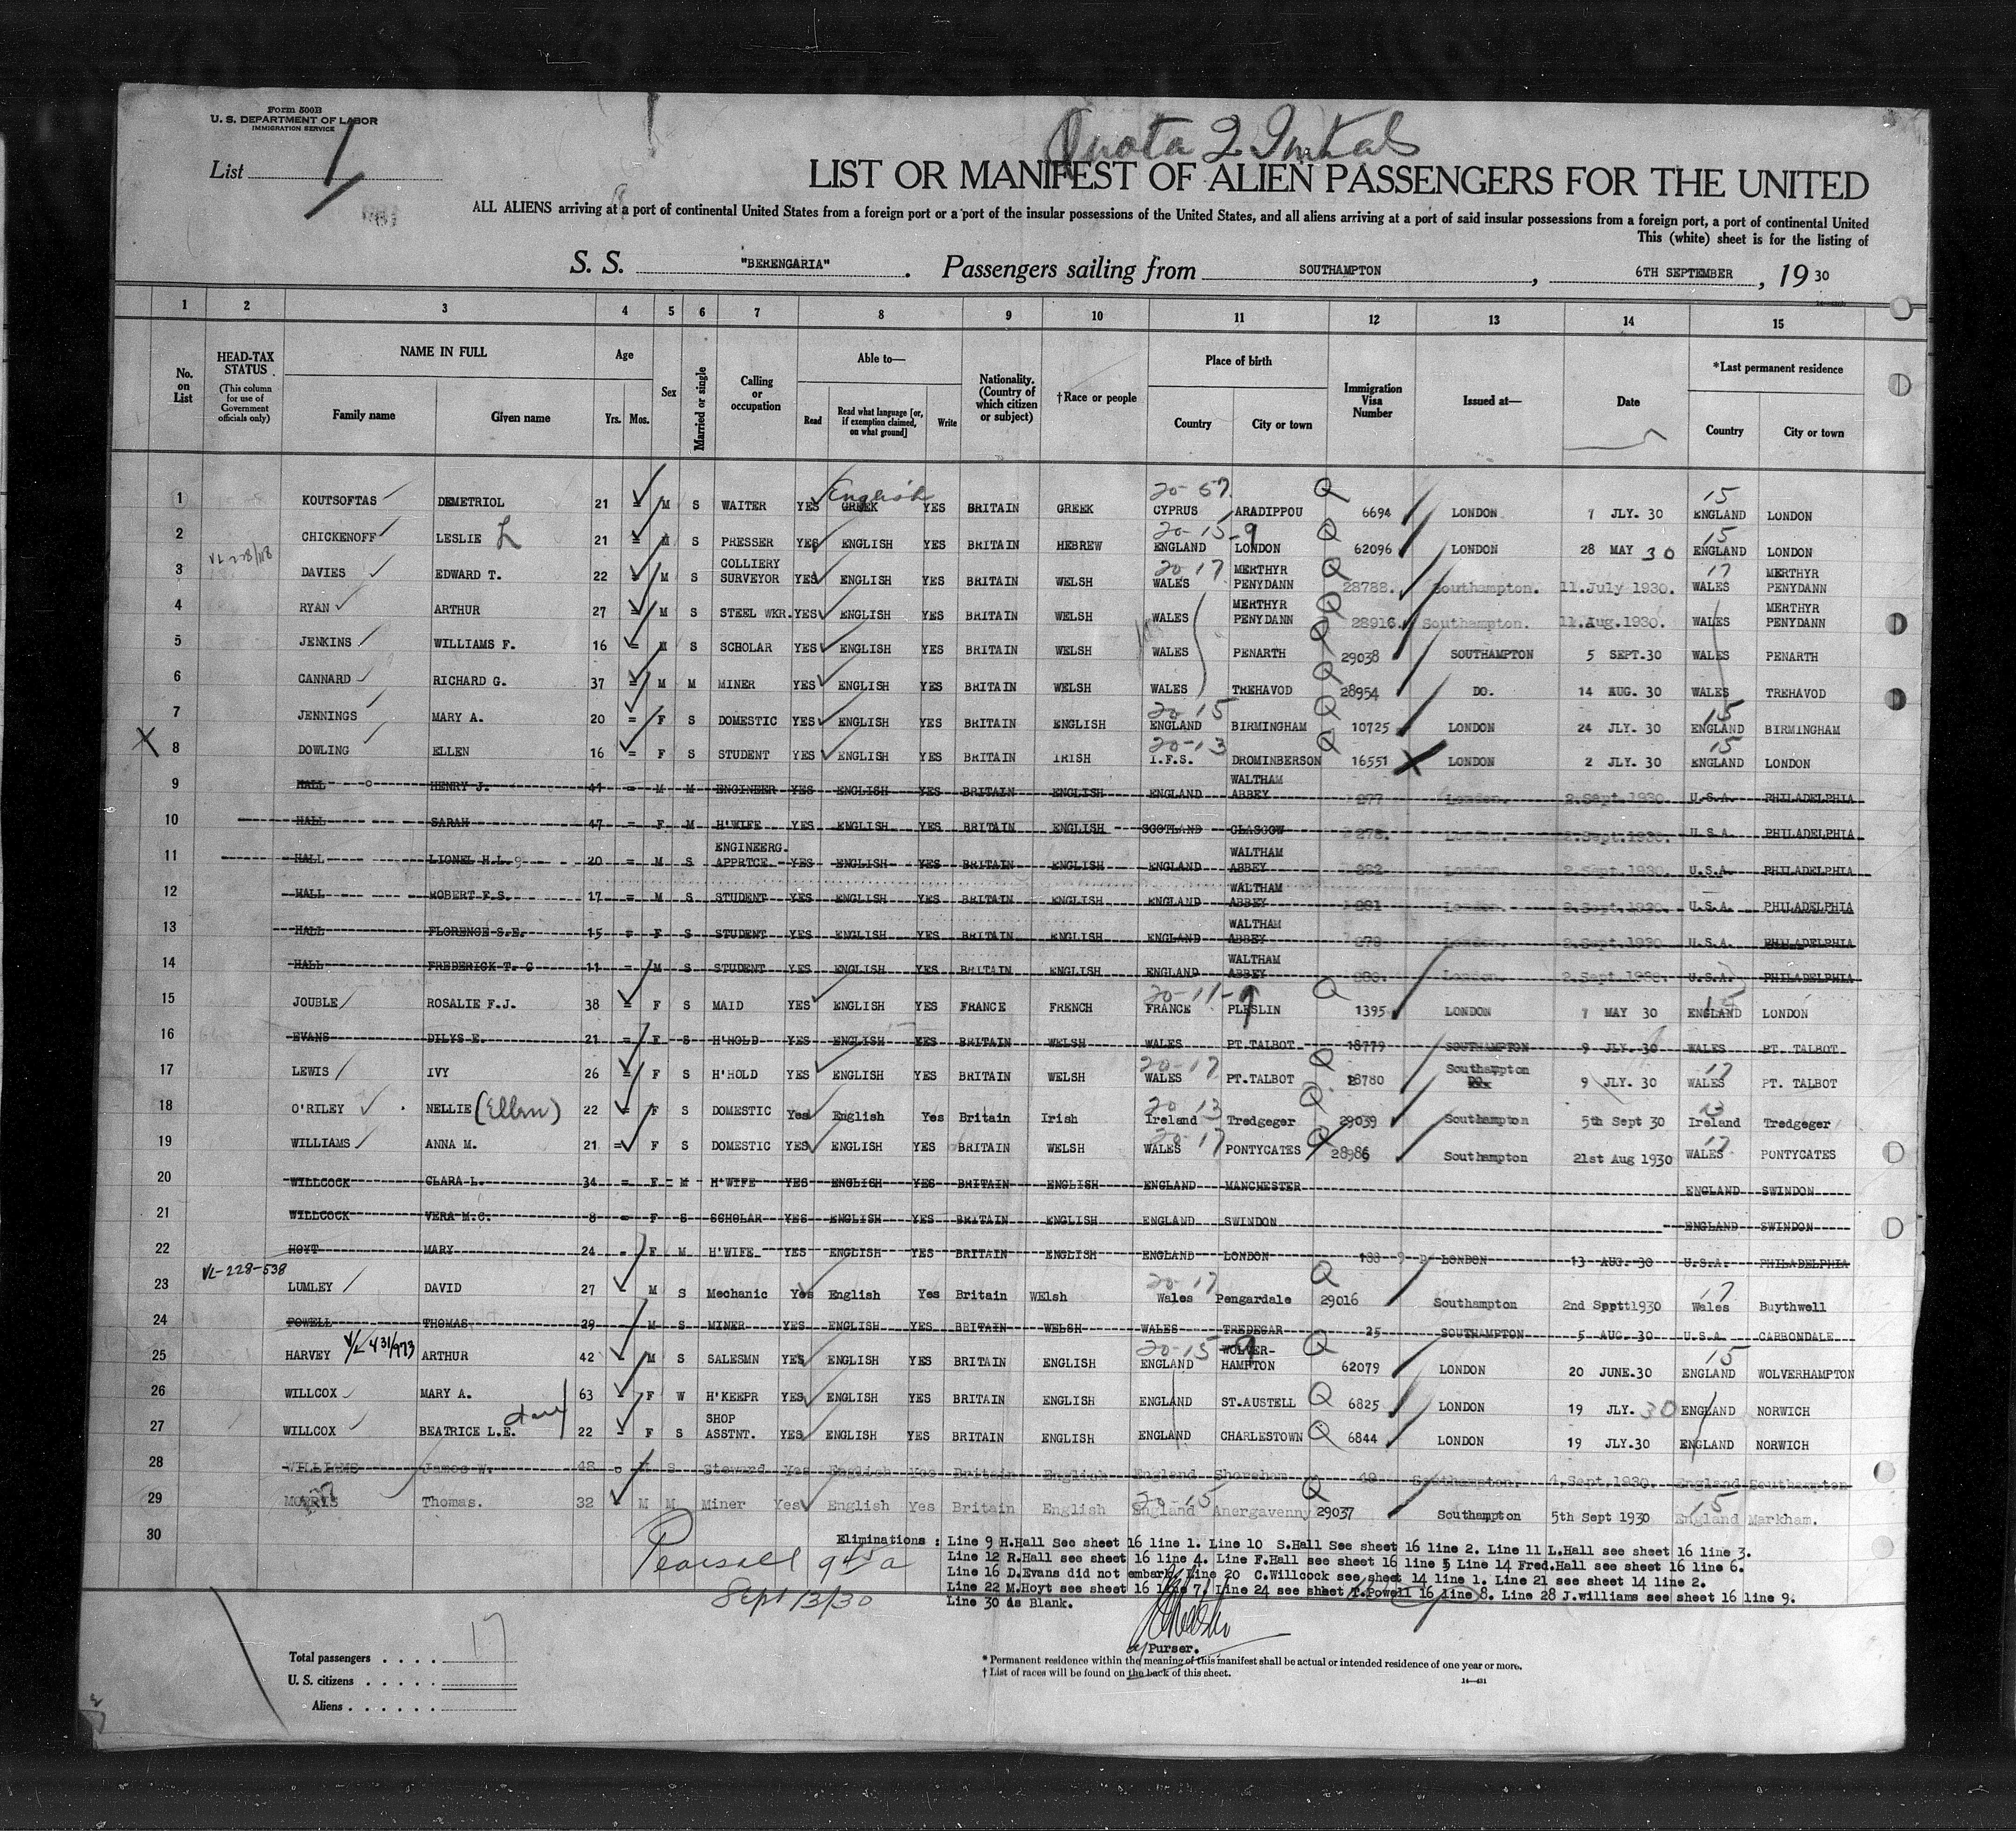 Form 500B
U. S. DEPARTMENT OF LABOR
IMMIGRATION SERVICE
Quota
List 1
LIST OR MANIFEST OF ALIEN PASSENGERS FOR THE UNITED
ALL ALIENS arriving at a port of continental United States from a foreign port or a port of the insular possessions of the United States, and all aliens arriving at a port of said insular possessions from a foreign port, a port of continental United
This (white) sheet is for the listing of
S. S. "BERENGARIA". Passengers sailing from SOUTHAMPTON, 6TH SEPTEMBER, 19 30
1 2 3 4 5 6 7 8 9 10 11 12 13 14 15
No. on List
HEAD-TAX STATUS (This column for use of Government officials only)
NAME IN FULL Family name Given name
Age Yrs. Mos.
Sex
Married or single
Calling or occupation
Able to— Read Read what language [or, if exemption claimed, on what ground] Write
Nationality. (Country of which citizen or subject)
†Race or people
Place of birth Country City or town
Immigration Visa Number
Issued at—
Date
*Last permanent residence Country City or town
1 KOUTSOFTAS DEMETRIOL 21 M S WAITER YES GREEK English YES BRITAIN GREEK 20-57 CYPRUS ARADIPPOU Q 6694 LONDON 7 JLY. 30 15 ENGLAND LONDON
2 CHICKENOFF LESLIE L 21 M S PRESSER YES ENGLISH YES BRITAIN HEBREW 20-15-9 ENGLAND LONDON Q 62096 LONDON 28 MAY 30 15 ENGLAND LONDON
3 DAVIES EDWARD T. 22 M S COLLIERY SURVEYOR YES ENGLISH YES BRITAIN WELSH 20-17 WALES MERTHYR PENYDANN Q 28788. Southampton. 11.July 1930. 17 WALES MERTHYR PENYDANN
4 RYAN ARTHUR 27 M S STEEL WKR. YES ENGLISH YES BRITAIN WELSH WALES MERTHYR PENYDANN Q 28916. Southampton. 11.Aug.1930. WALES MERTHYR PENYDANN
5 JENKINS WILLIAMS F. 16 M S SCHOLAR YES ENGLISH YES BRITAIN WELSH WALES PENARTH Q 29038 SOUTHAMPTON 5 SEPT.30 WALES PENARTH
6 CANNARD RICHARD G. 37 M M MINER YES ENGLISH YES BRITAIN WELSH WALES TREHAVOD Q 28954 DO. 14 AUG. 30 WALES TREHAVOD
7 JENNINGS MARY A. 20 F S DOMESTIC YES ENGLISH YES BRITAIN ENGLISH 20-15 ENGLAND BIRMINGHAM Q 10725 LONDON 24 JLY. 30 15 ENGLAND BIRMINGHAM
X 8 DOWLING ELLEN 16 F S STUDENT YES ENGLISH YES BRITAIN IRISH 20-13 I.F.S. DROMINBERSON Q 16551 LONDON 2 JLY. 30 15 ENGLAND LONDON
9 HALL HENRY J. M M ENGINEER YES ENGLISH YES BRITAIN ENGLISH ENGLAND WALTHAM ABBEY 277 London. 2.Sept.1930. U.S.A. PHILADELPHIA
10 HALL SARAH 47 F M H'WIFE YES ENGLISH YES BRITAIN ENGLISH SCOTLAND GLASGOW 278. London. 2.Sept.1930. U.S.A. PHILADELPHIA
11 HALL LIONEL H.L. 20 M S ENGINEERG. APPRTCE YES ENGLISH YES BRITAIN ENGLISH ENGLAND WALTHAM ABBEY 282 London. 2.Sept.1930. U.S.A. PHILADELPHIA
12 HALL ROBERT F.S. 17 M S STUDENT YES ENGLISH YES BRITAIN ENGLISH ENGLAND WALTHAM ABBEY 281 London. 2.Sept.1930. U.S.A. PHILADELPHIA
13 HALL FLORENCE S.E. 15 F S STUDENT YES ENGLISH YES BRITAIN ENGLISH ENGLAND WALTHAM ABBEY 279 London. 2.Sept.1930 U.S.A. PHILADELPHIA
14 HALL FREDERICK T. C 11 M S STUDENT YES ENGLISH YES BRITAIN ENGLISH ENGLAND WALTHAM ABBEY 280. London. 2.Sept.1930. U.S.A. PHILADELPHIA
15 JOUBLE ROSALIE F.J. 38 F S MAID YES ENGLISH YES FRANCE FRENCH 20-11-9 FRANCE PLESLIN Q 1395 LONDON 7 MAY 30 15 ENGLAND LONDON
16 EVANS DILYS E. 21 F S H'HOLD YES ENGLISH YES BRITAIN WELSH WALES PT.TALBOT 18779 SOUTHAMPTON 9 JLY. 30 WALES PT. TALBOT
17 LEWIS IVY 26 F S H'HOLD YES ENGLISH YES BRITAIN WELSH 20-17 WALES PT.TALBOT Q 28780 Southampton 9 JLY. 30 17 WALES PT. TALBOT
18 O'RILEY NELLIE (Ellen) 22 F S DOMESTIC Yes English Yes Britain Irish 20 13 Ireland Tredgeger Q 29039 Southampton 5th Sept 30 13 Ireland Tredgeger
19 WILLIAMS ANNA M. 21 F S DOMESTIC YES ENGLISH YES BRITAIN WELSH 20-17 WALES PONTYCATES Q 28986 Southampton 21st Aug 1930 17 WALES PONTYCATES
20 WILLCOCK CLARA L. 34 F M H'WIFE YES ENGLISH YES BRITAIN ENGLISH ENGLAND MANCHESTER ENGLAND SWINDON
21 WILLCOCK VERA M.C. 8 F S SCHOLAR YES ENGLISH YES BRITAIN ENGLISH ENGLAND SWINDON ENGLAND SWINDON
22 HOYT MARY 24 F M H'WIFE YES ENGLISH YES BRITAIN ENGLISH ENGLAND LONDON LONDON 13 AUG. 30 U.S.A. PHILADELPHIA
VL-228-538
23 LUMLEY DAVID 27 M S Mechanic Yes English Yes Britain WElsh 20-17 Wales Pengardale Q 29016 Southampton 2nd Septt1930 17 Wales Buythwell
24 POWELL THOMAS 29 M S MINER YES ENGLISH YES BRITAIN WELSH WALES TREDEGAR 25 SOUTHAMPTON 5 AUG. 30 U.S.A CARBONDALE
25 HARVEY V/L 431/973 ARTHUR 42 M S SALESMN YES ENGLISH YES BRITAIN ENGLISH 20-15-9 ENGLAND WOLVER-HAMPTON Q 62079 LONDON 20 JUNE.30 15 ENGLAND WOLVERHAMPTON
26 WILLCOX MARY A. 63 F W H'KEEPR YES ENGLISH YES BRITAIN ENGLISH ENGLAND ST.AUSTELL Q 6825 LONDON 19 JLY. 30 ENGLAND NORWICH
27 WILLCOX BEATRICE L.E. 22 F S SHOP ASSTNT. YES ENGLISH YES BRITAIN ENGLISH ENGLAND CHARLESTOWN Q 6844 LONDON 19 JLY.30 ENGLAND NORWICH
28 WILLIAMS James W. 48 M S Steward Yes English Yes Britain English England Shoreham 49 Southampton. 4.Sept.1930. England Southampton
29 MORRIS Thomas. 32 M M Miner Yes English Yes Britain English 20-15 England Anergavenny Q 29037 Southampton 5th Sept 1930 15 England Markham.
30
Eliminations : Line 9 H.Hall See sheet 16 line 1. Line 10 S.Hall See sheet 16 line 2. Line 11 L.Hall see sheet 16 line 3.
Line 12 R.Hall see sheet 16 line 4. Line F.Hall see sheet 16 line 5 Line 14 Fred.Hall see sheet 16 line 6.
Line 16 D.Evans did not embark. Line 20 C.Willcock see sheet 14 line 1. Line 21 see sheet 14 line 2.
Line 22 M.Hoyt see sheet 16 line 7. Line 24 see sheet T.Powell 16 line 8. Line 28 J.williams see sheet 16 line 9.
Line 30 is Blank.
Pearsall
Sept 13/30
Purser.
Total passengers . . . . 17
U. S. citizens . . . . .
Aliens . . . . . .
* Permanent residence within the meaning of this manifest shall be actual or intended residence of one year or more.
† List of races will be found on the back of this sheet.
14—431